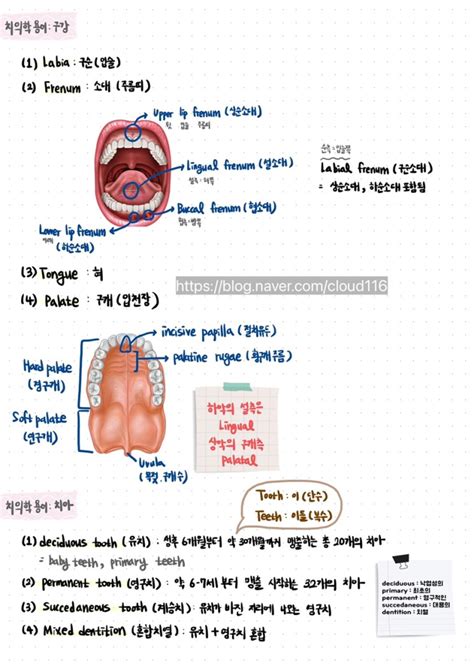 치의학 용어 : 구강
(1) Labia : 구순 (입술)
(2) Frenum : 소대 (주름띠)
Upper lip frenum (상순소대)
윗 입술 주름띠
Lingual frenum (설소대)
설측 : 혀쪽
순측 = 입술쪽
Labial frenum (순소대)
= 상순소대, 하순소대 포함됨
Buccal frenum (협소대)
협측 = 볼쪽
Lower lip frenum
(하순소대)
(3) Tongue : 혀
(4) Palate : 구개 (입천장)
https://blog.naver.com/cloud116
incisive papilla (절치유두)
palatine rugae (횡구개주름)
Hard palate
(경구개)
Soft palate
(연구개)
Uvula
(목젖, 구개수)
하악의 설측은
Lingual
상악의 구개측
Palatal
치의학 용어 : 치아
Tooth : 이 (단수)
Teeth : 이들 (복수)
(1) deciduous tooth (유치) : 생후 6개월부터 약 30개월까지 맹출하는 총 20개의 치아
= baby teeth, primary teeth
(2) permanent tooth (영구치) : 약 6-7세부터 맹출 시작하는 32개의 치아
(3) Succedaneous tooth (계승치) : 유치가 빠진 자리에 나오는 영구치
(4) Mixed dentition (혼합치열) : 유치 + 영구치 혼합
deciduous : 낙엽성의
primary : 최초의
permanent : 영구적인
succedaneous : 대용의
dentition : 치열